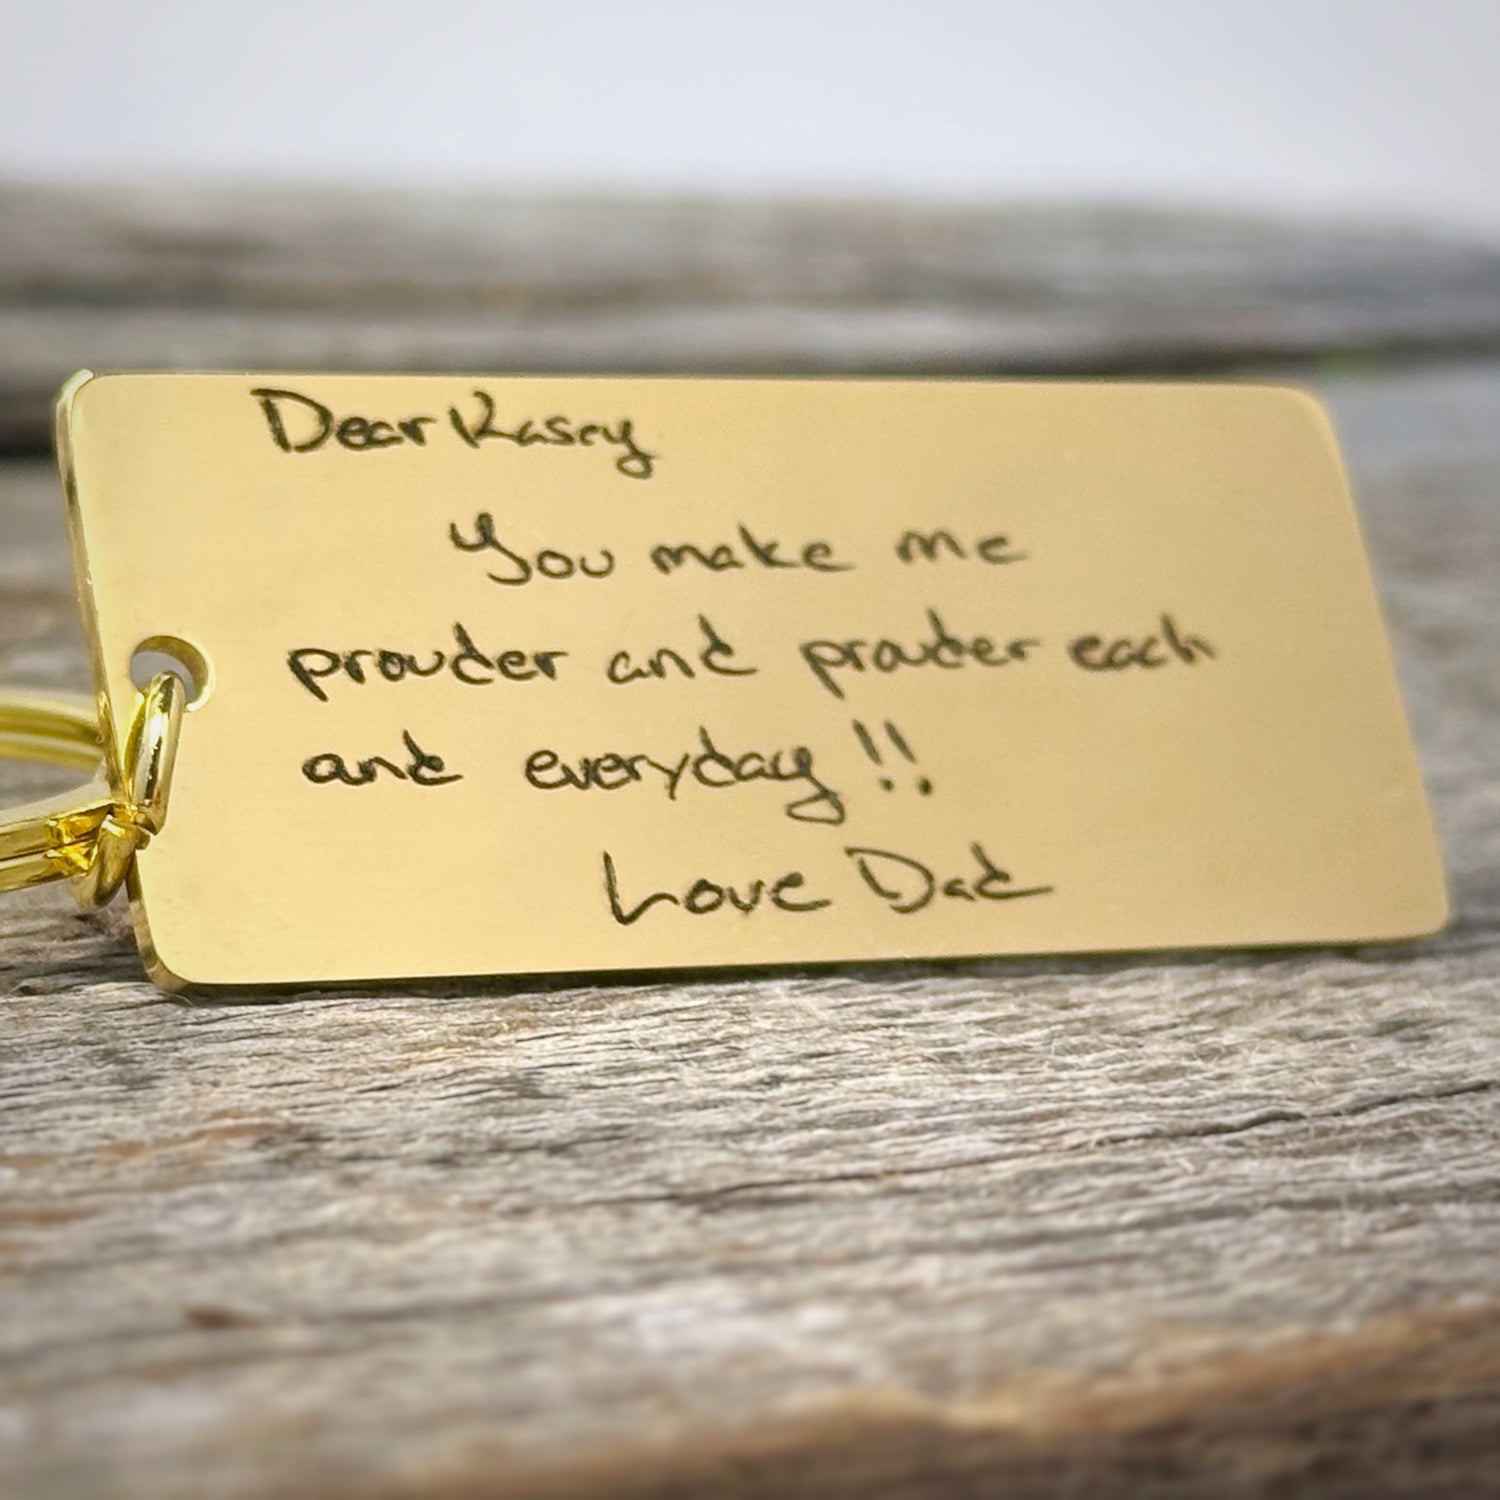 Dear Kasey
You make me
prouder and prouder each
and everyday!!
Love Dad